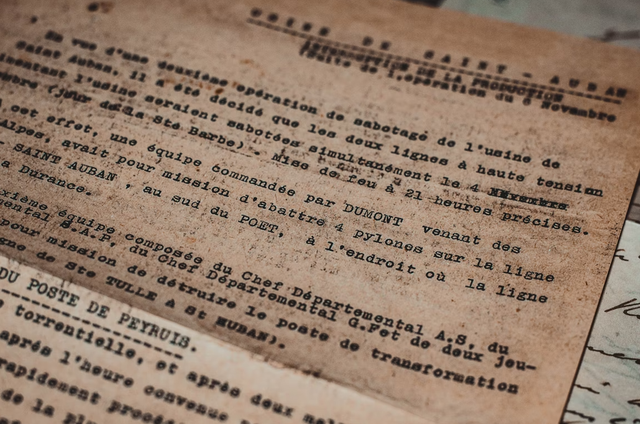 USINE DE SAINT - AUBAN
INTERRUPTION DE LA PRODUCTION
(Suite de l'opération du 6 Novembre
En vue d'une deuxième opération de sabotage de l'usine de
Saint Auban, il a été décidé que les deux lignes à haute tension
mentant l'usine seraient sabotées simultanément le 4
embre (jour de la Sté Barbe). Mise de feu à 21 heures précises.
cet effet, une équipe commandée par DUMONT venant des
Alpes, avait pour mission d'abattre 4 pylones sur la ligne
SAINT AUBAN, au sud du POET, à l'endroit où la ligne
a Durance.
xième équipe composée du Chef Départemental A.S. du
mental S.A.P. du Chef Départemental G.F et de deux jeu-
pour mission de détruire le poste de transformation
gne de Ste TULLE à St AUBAN).
DU POSTE DE PEYRUIS.
torrentielle, et après deux
après l'heure convenue
rapidement
de la